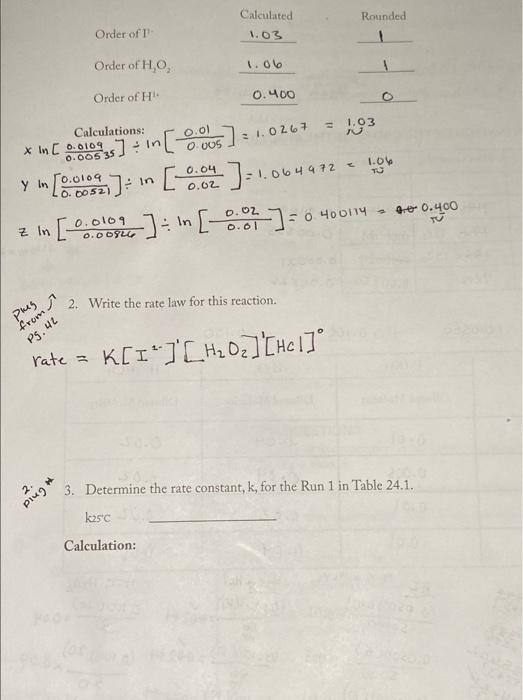 Calculated Rounded
Order of I¹⁻ 1.03 1
Order of H₂O₂ 1.06 1
Order of H¹⁺ 0.400 0
Calculations:
x ln [0.0109/0.00535] ÷ ln [0.01/0.005] = 1.0267 = 1.03
y ln [0.0109/0.00521] ÷ ln [0.04/0.02] = 1.064972 = 1.06
z ln [0.0109/0.00826] ÷ ln [0.02/0.01] = 0.400114 = 0.400
Plug from pg. 42
2. Write the rate law for this reaction.
rate = K[I¹⁻]¹[H₂O₂]¹[HCl]⁰
2. plug #
3. Determine the rate constant, k, for the Run 1 in Table 24.1.
k25°C
Calculation: